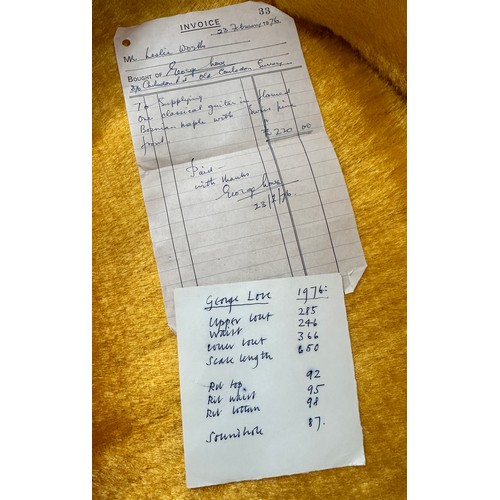 33
INVOICE
23 February 1976
Mr. Leslie Worth
BOUGHT OF George Lowe
Coulsdon Rd Old Coulsdon Surrey
To Supplying
One classical guitar in flamed
Bosnian maple with Swiss pine
front £220 00
Paid
with thanks
George Lowe
23/2/76
George Love 1976:
Upper bout 285
Waist 246
Lower bout 366
Scale length 650
Rib top. 92
Rib waist 95
Rib bottom 98
Soundhole 87.